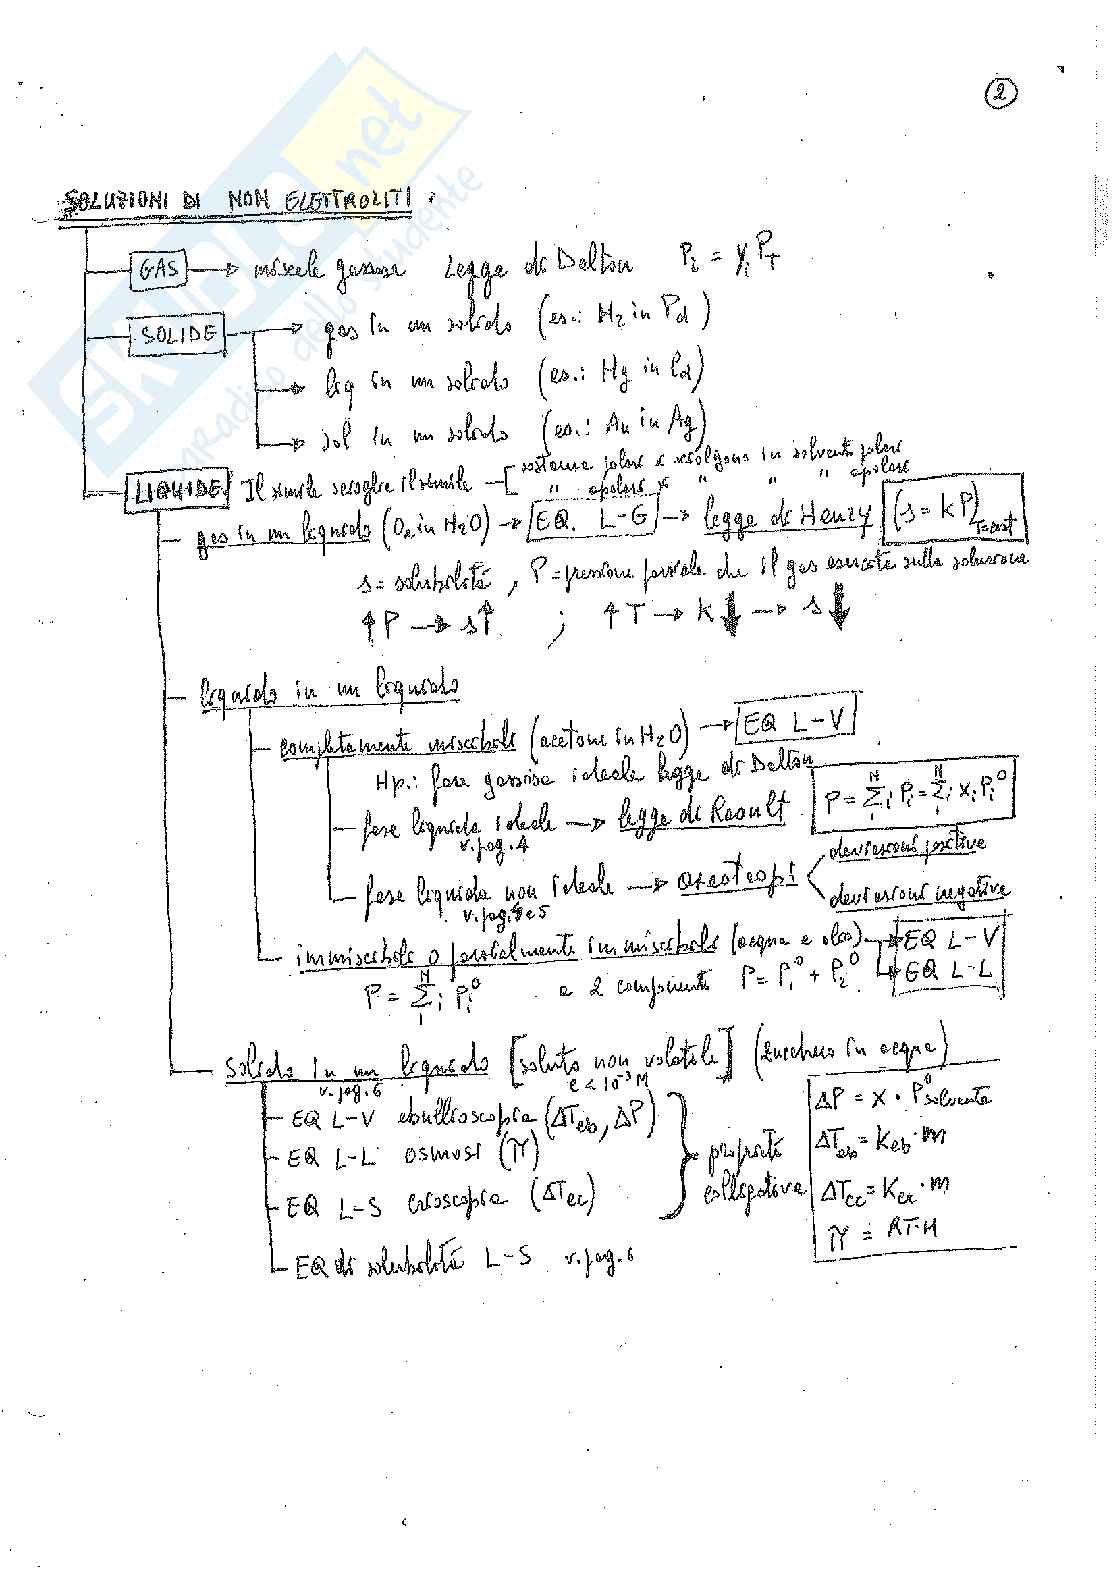 2
SKUOLA.net
paradiso dello studente
SOLUZIONI DI NON ELETTROLITI :
GAS → miscele gassose Legge di Dalton Pi = yi PT
SOLIDE → gas in un solido (es.: H2 in Pd)
→ liq in un solido (es.: Hg in Cd)
→ sol in un solido (es.: Au in Ag)
LIQUIDE Il simile scioglie il simile [ sostanze polari si sciolgono in solventi polari
" apolari " " " apolari
gas in un liquido (O2 in H2O) → EQ. L-G → legge di Henry (s = k P)T=cost
s = solubilità , P = pressione parziale che il gas esercita sulla soluzione
↑P → s↑ ; ↑T → k↓ → s↓
liquido in un liquido
completamente miscibili (acetone in H2O) → EQ L-V
Hp.: fase gassosa ideale legge di Dalton
fase liquida ideale → legge di Raoult P = Σi Pi = Σi xi Pi°
v. pag. 4
fase liquida non ideale → azeotropi < deviazioni positive
deviazioni negative
v. pag. 4 e 5
immiscibili o parzialmente immiscibili (acqua e olio) → EQ L-V
→ EQ L-L
P = Σi Pi° a 2 componenti P = P1° + P2°
Solido in un liquido [soluto non volatile] (zucchero in acqua)
v. pag. 6 c < 10⁻³ M
EQ L-V ebullioscopia (ΔTeb, ΔP)
EQ L-L osmosi (π)
EQ L-S crioscopia (ΔTcr)
} proprietà colligative
ΔP = x · P°solvente
ΔTeb = Keb · m
ΔTcr = Kcr · m
π = RT·M
EQ di solubilità L-S v. pag. 6